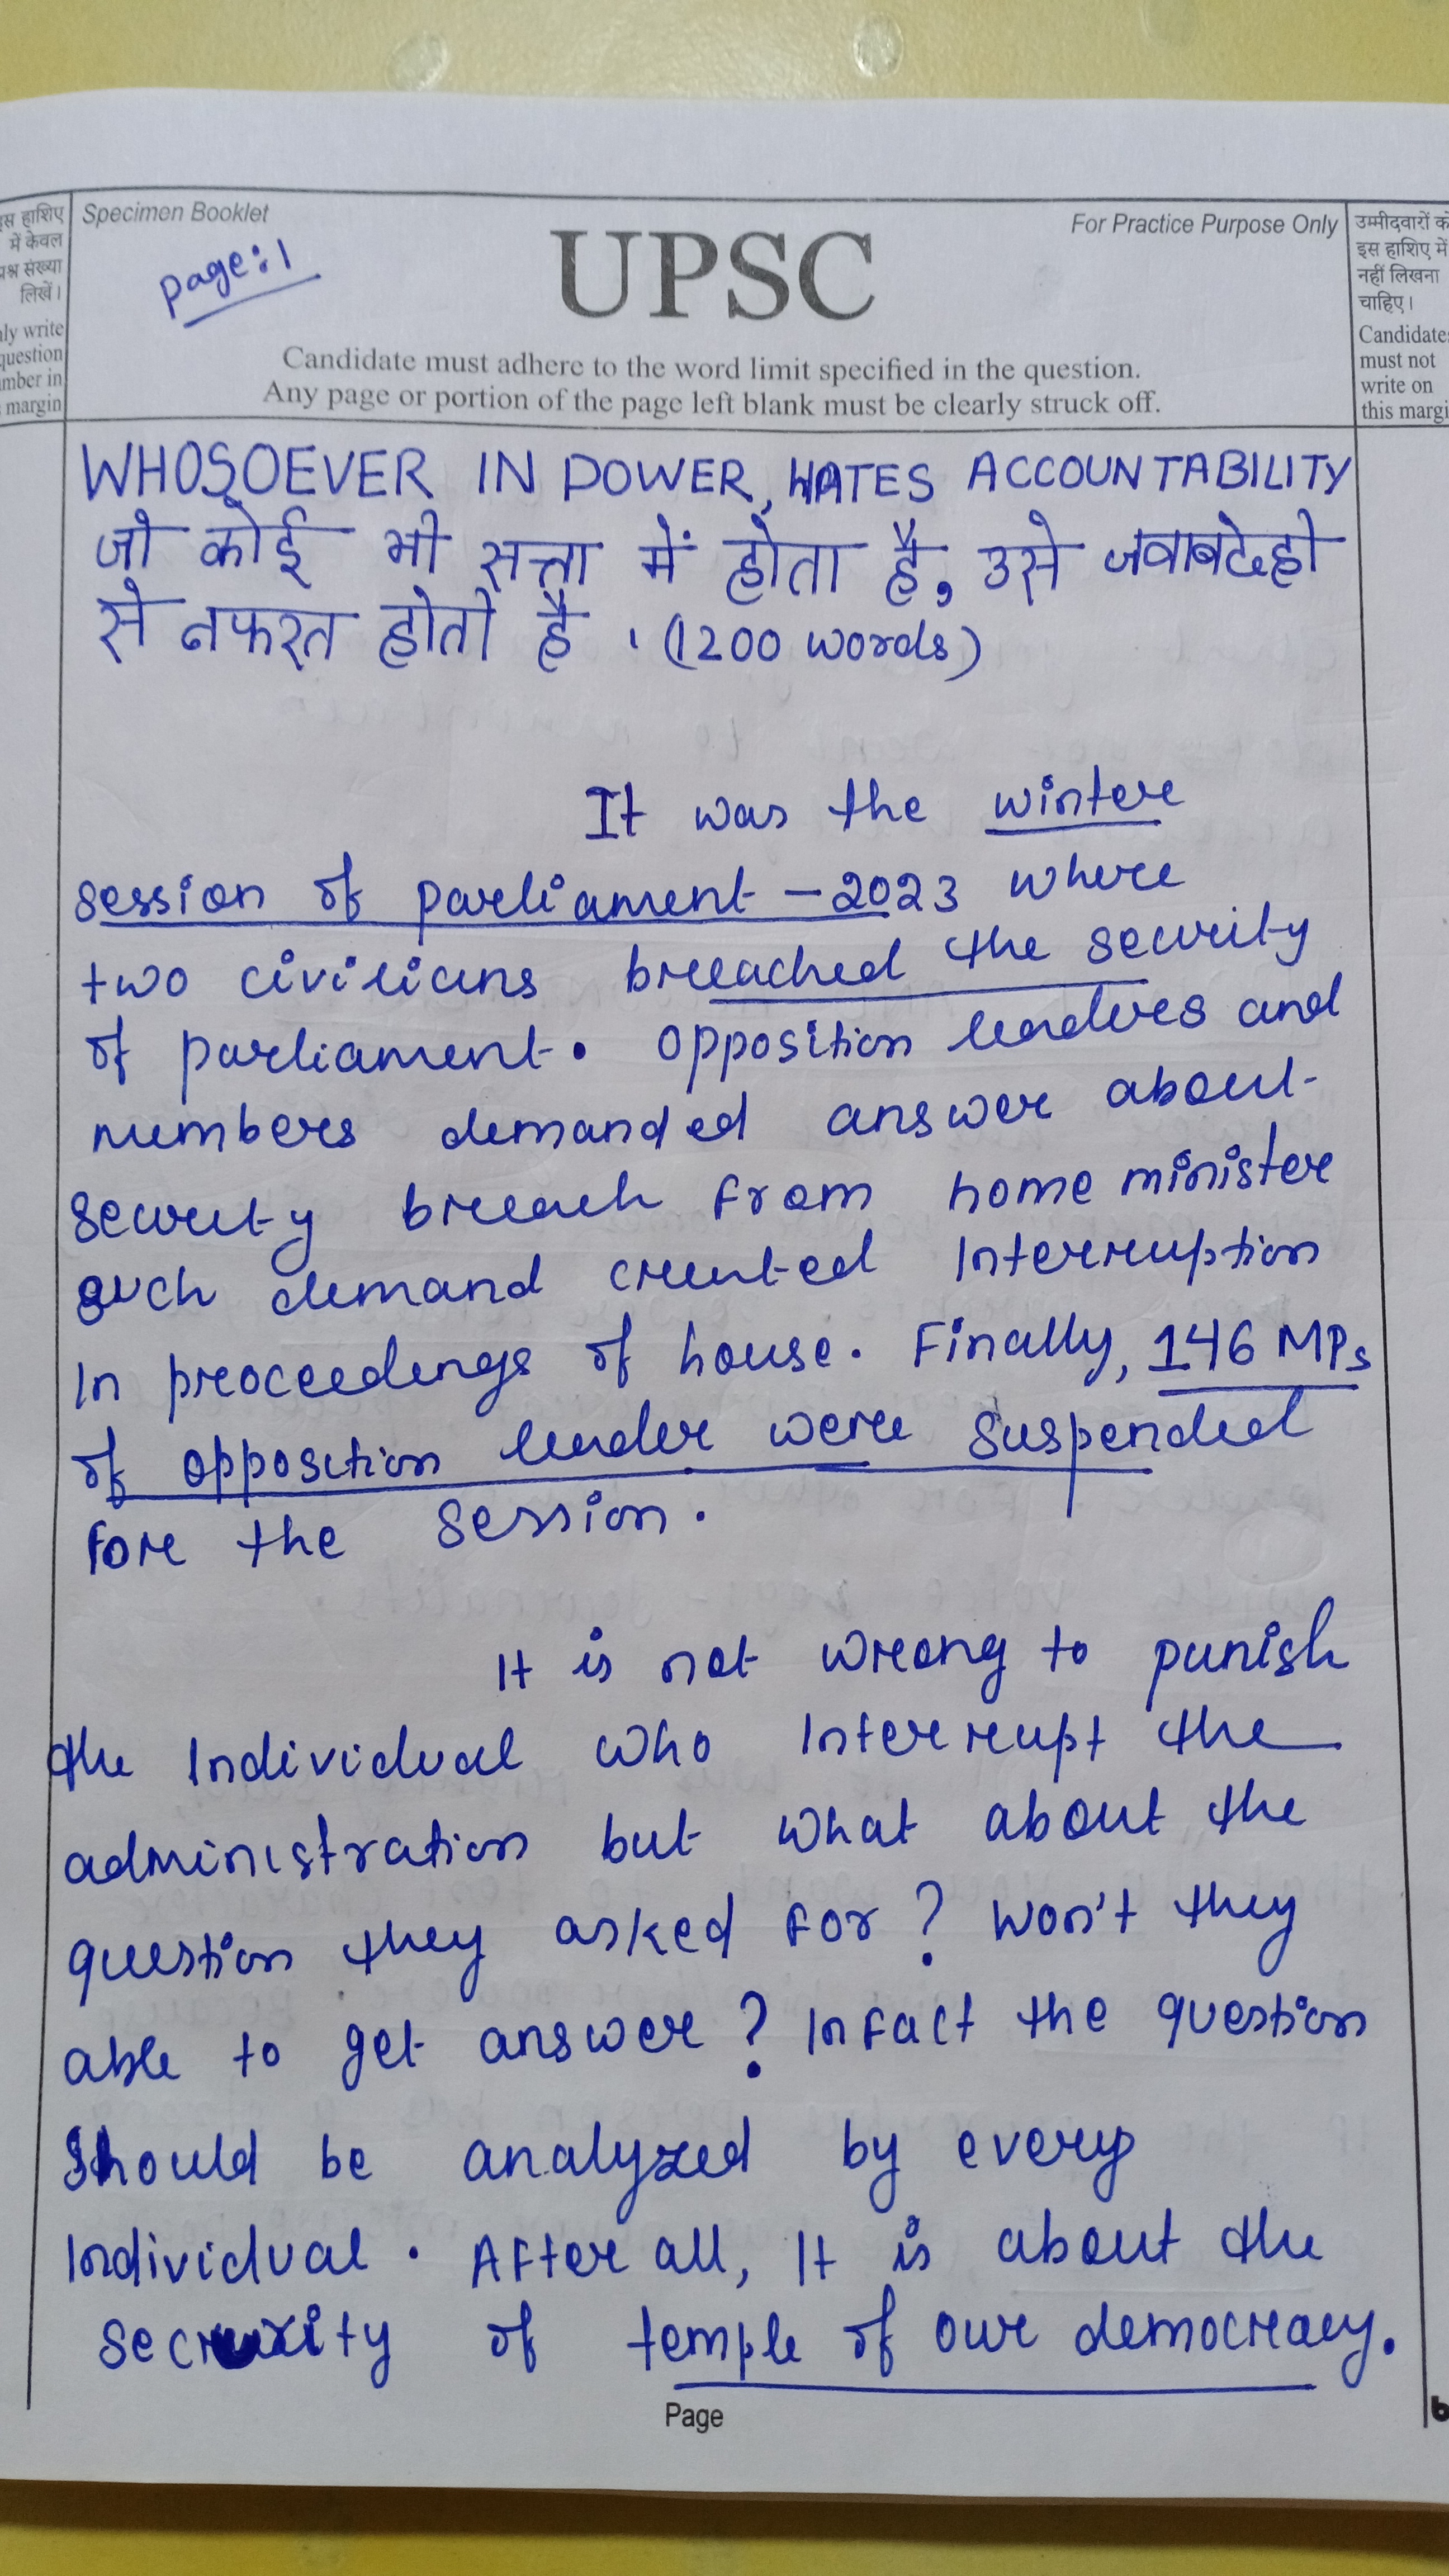 इस हाशिए
में केवल
प्रश्न संख्या
लिखें।
nly write
question
mber in
margin
Specimen Booklet
page:1
UPSC
For Practice Purpose Only
Candidate must adhere to the word limit specified in the question.
Any page or portion of the page left blank must be clearly struck off.
उम्मीदवारों को
इस हाशिए में
नहीं लिखना
चाहिए।
Candidates
must not
write on
this margi
WHOSOEVER IN POWER, HATES ACCOUNTABILITY
जो कोई भी सत्ता में होता है, उसे जवाबदेही
से नफरत होती है । (1200 words)
It was the winter
session of parliament - 2023 where
two civilians breached the security
of parliament. Opposition leaders and
numbers demanded answer about
security breach from home minister
such demand created Interruption
In proceedings of house. Finally, 146 MPs
of opposition leader were suspended
for the session.
It is not wrong to punish
the Individual who Interrupt the
administration but what about the
question they asked for? Won't they
able to get answer? Infact the question
should be analyzed by every
Individual. After all, It is about the
security of temple of our democracy.
Page